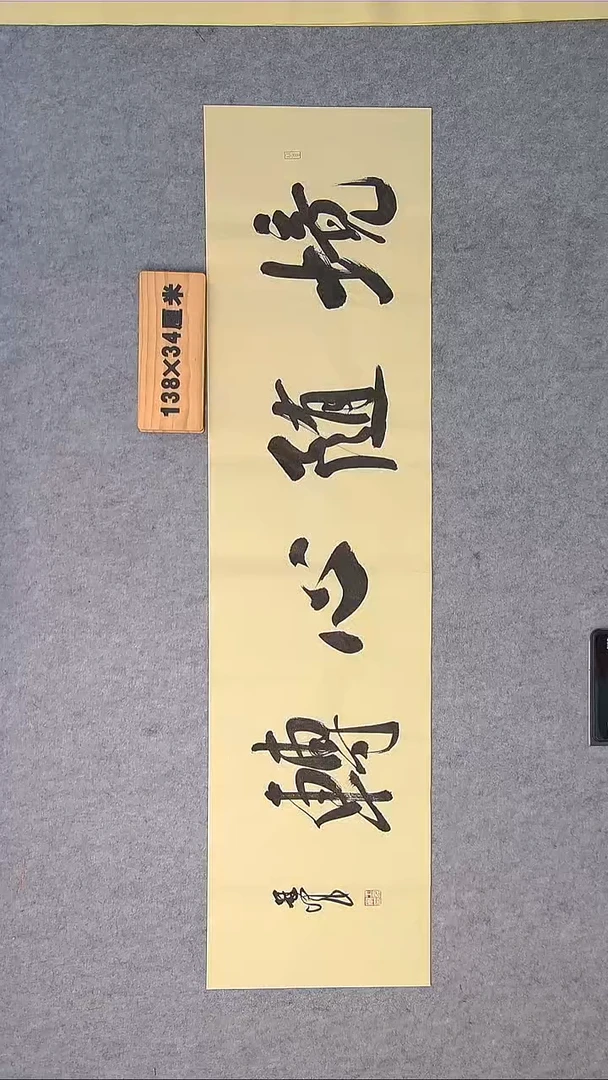 境随心轉
138×34厘米